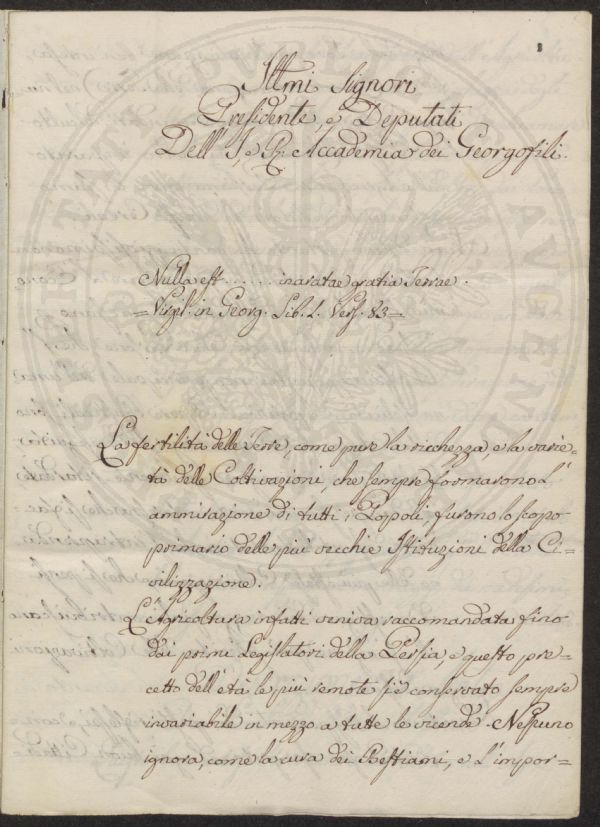 1
Illmi Signori
Presidente, e Deputati
Dell' I. e R. Accademia dei Georgofili.
Nulla est ....... inaratae gratia Terrae.
= Virgil. in Georg. Lib. 1. Vers. 83 =
La fertilità delle Terre, come pure la ricchezza e la varie=
tà delle Coltivazioni, che sempre formarono l'
ammirazione di tutti i Popoli, furono lo scopo
primario delle più vecchie Istituzioni della Ci=
vilizzazione.
L'Agricoltura infatti veniva raccomandata fino
dai primi Legislatori della Persia, e questo pre=
cetto dell'età le più remote si è conservato sempre
invariabile in mezzo a tutte le vicende. Nessuno
ignora, come la cura dei Bestiami, e l'impor=